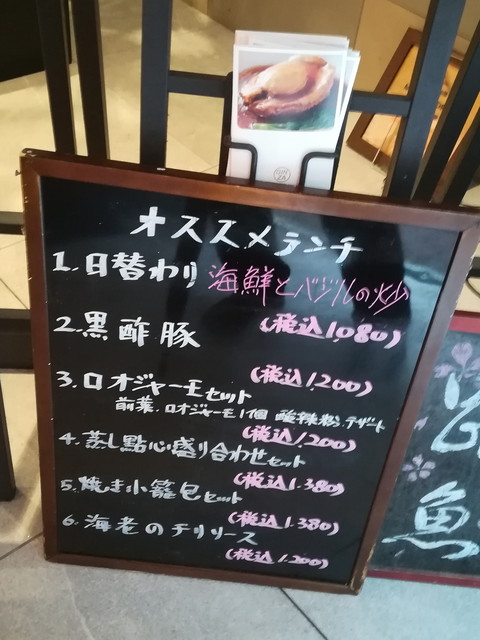 オススメランチ
1.日替わり 海鮮とバジルの炒
(税込1,080)
2.黒酢豚
(税込1,200)
3.ロオジャーモセット
前菜、ロオジャーモ1個 酸辣粉、デザート
(税込1,200)
4.蒸し點心盛り合わせセット
(税込1.380)
5.焼き小籠包セット
(税込1.380)
6.海老のチリソース
(税込1.200)
魚